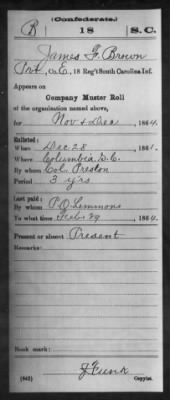 (Confederate.)
B 18 S.C.
James F. Brown
Pvt, Co. E, 18 Reg't South Carolina Inf.
Appears on
Company Muster Roll
of the organization named above,
for Nov & Dec, 1864.
Enlisted:
When Dec 28, 1861.
Where Columbia S.C.
By whom Col. Preston
Period 3 yrs
Last paid:
By whom P.Q. Lemmons
To what time Feb 29, 1864.
Present or absent Present
Remarks:
Book mark:
(642) J Funk
Copyist.